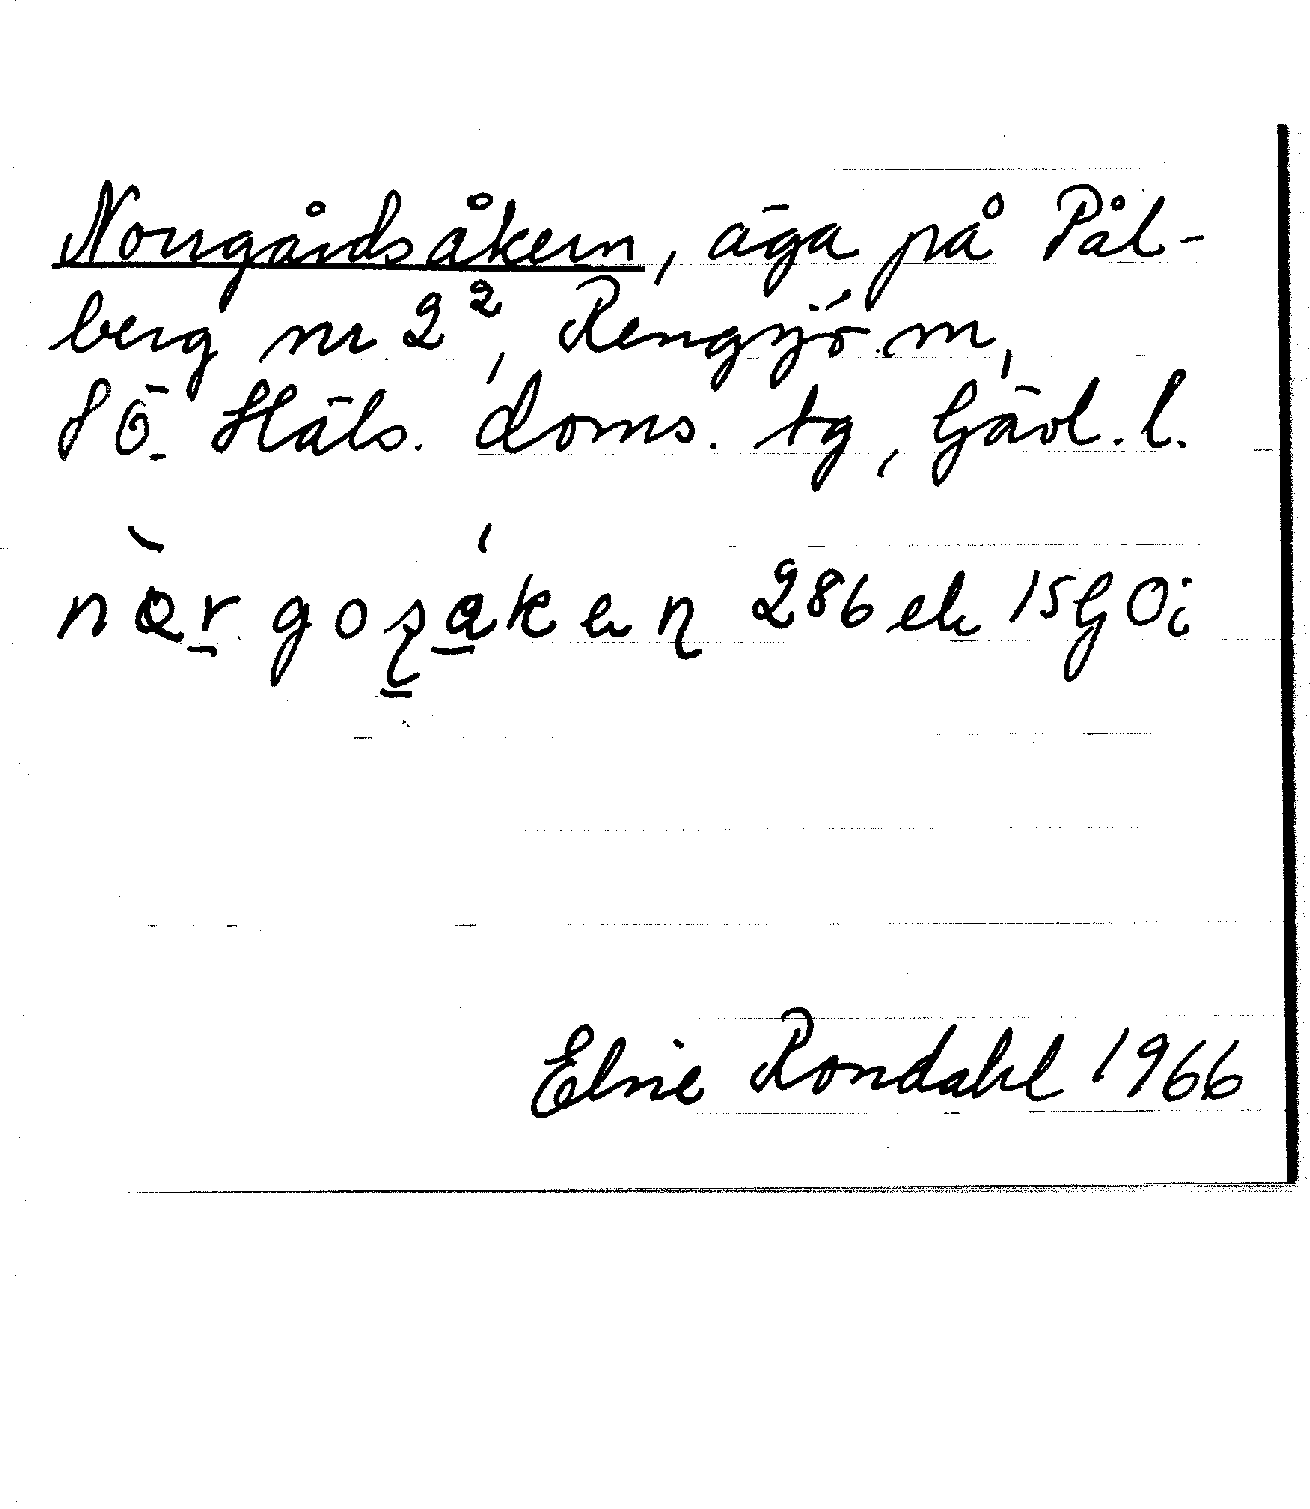 Norrgårdsåkern, äga på Pål-
berg nr 2², Rengsjö sn,
SÖ. Häls. doms. tg, Gävl. l.
nòrgosåken 286 ek 15G 0i
Elsie Rondahl 1966